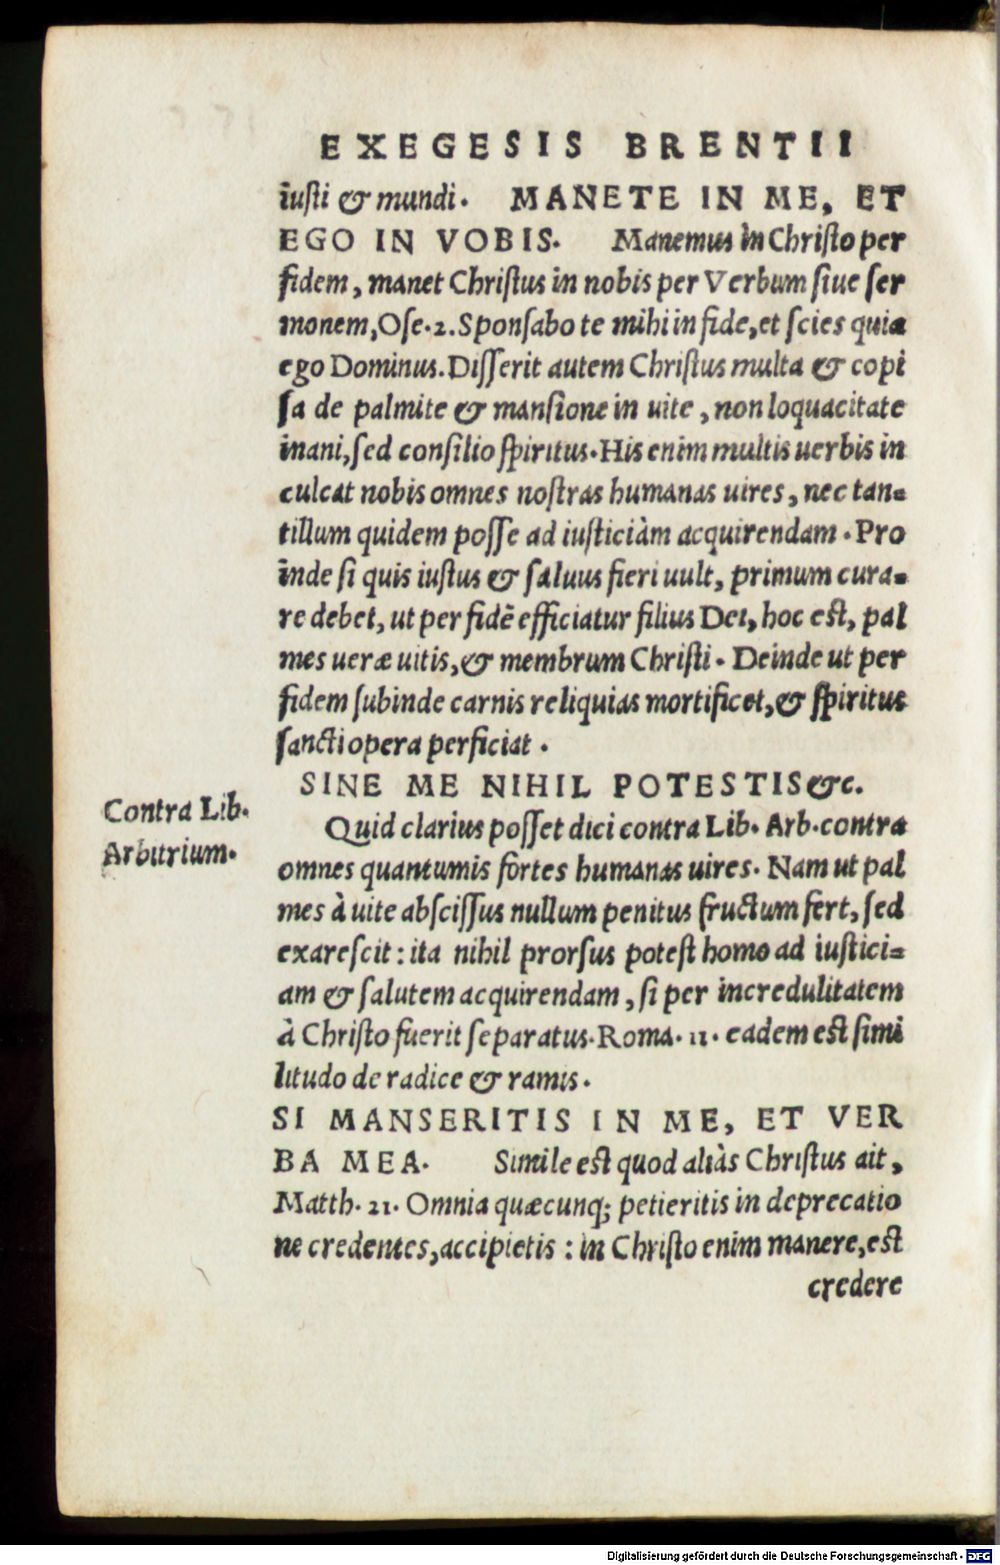 EXEGESIS BRENTII
iusti & mundi. MANETE IN ME, ET
EGO IN VOBIS. Manemus in Christo per
fidem, manet Christus in nobis per Verbum siue ser
monem, Ose. 2. Sponsabo te mihi in fide, et scies quia
ego Dominus. Disserit autem Christus multa & copi
sa de palmite & mansione in uite, non loquacitate
inani, sed consilio spiritus. His enim multis uerbis in
culcat nobis omnes nostras humanas uires, nec tan=
tillum quidem posse ad iusticiàm acquirendam. Pro
inde si quis iustus & saluus fieri uult, primum cura=
re debet, ut per fidē efficiatur filius Dei, hoc est, pal
mes ueræ uitis, & membrum Christi. Deinde ut per
fidem subinde carnis reliquias mortificet, & spiritus
sancti opera perficiat.
SINE ME NIHIL POTESTIS &c.
Contra Lib.
Arbitrium.
Quid clarius posset dici contra Lib. Arb. contra
omnes quantumis fortes humanas uires. Nam ut pal
mes à uite abscissus nullum penitus fructum fert, sed
exarescit: ita nihil prorsus potest homo ad iustici=
am & salutem acquirendam, si per incredulitatem
à Christo fuerit separatus. Roma. 11. eadem est simi
litudo de radice & ramis.
SI MANSERITIS IN ME, ET VER
BA MEA. Simile est quod aliàs Christus ait,
Matth. 21. Omnia quæcunq; petieritis in deprecatio
ne credentes, accipietis: in Christo enim manere, est
credere
Digitalisierung gefördert durch die Deutsche Forschungsgemeinschaft - DFG